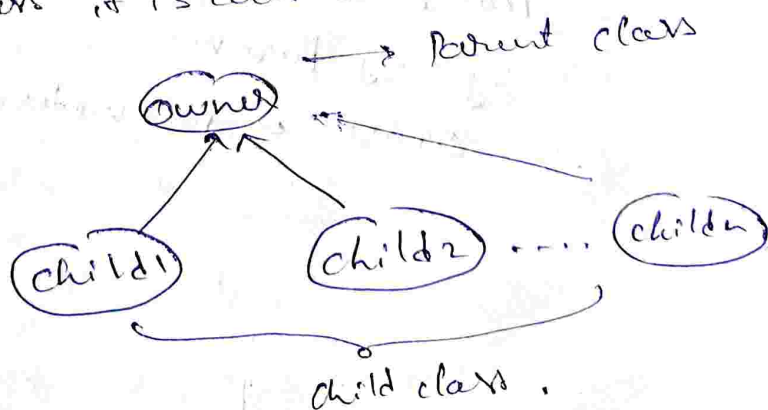 it is
Parent class
owner
child1 child2 ..... childn
child class .